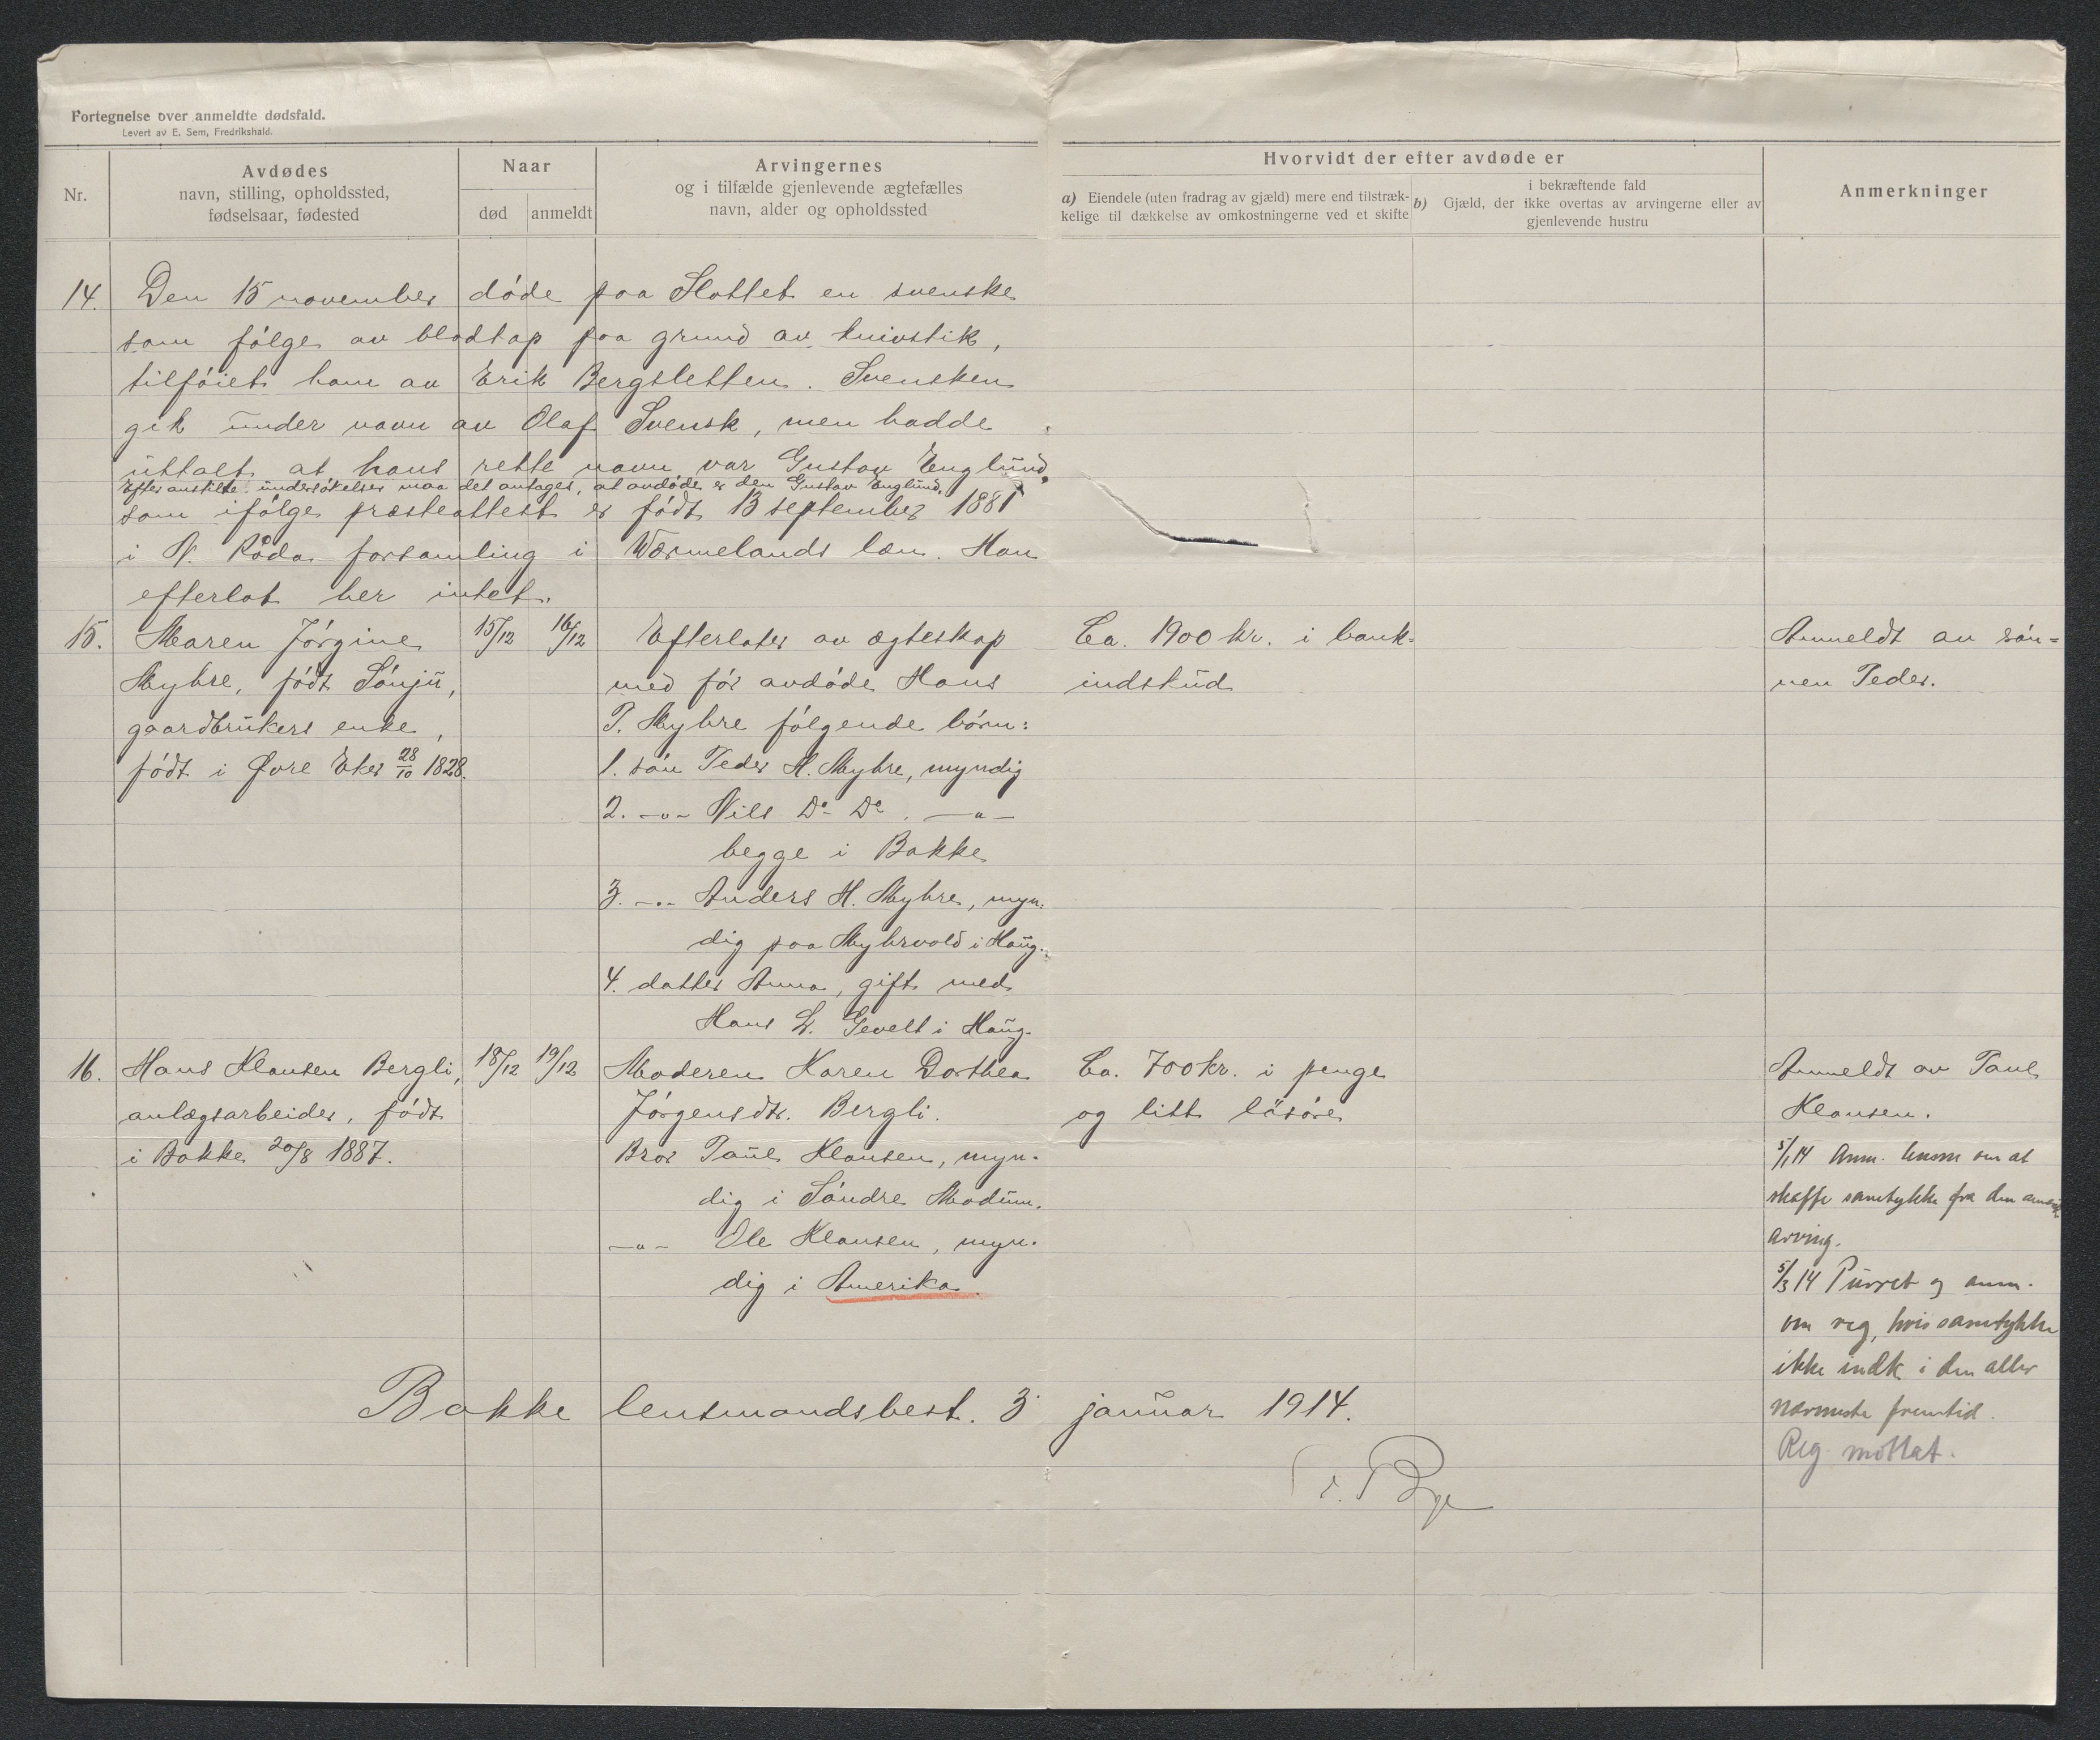 Fortegnelse over anmeldte dødsfald.
Levert av E. Sem, Fredrikshald.
Nr.
Avdødes
navn, stilling, opholdssted,
fødselsaar, fødested
Naar
død
anmeldt
Arvingernes
og i tilfælde gjenlevende ægtefælles
navn, alder og opholdssted
Hvorvidt der efter avdøde er
a) Eiendele (uten fradrag av gjæld) mere end tilstræk-
kelige til dækkelse av omkostningerne ved et skifte
i bekræftende fald
b) Gjæld, der ikke overtas av arvingerne eller av
gjenlevende hustru
Anmerkninger
14. Den 15 november døde paa Slottet en svenske
som følge av blodtap paa grund av knivstik,
tilføiet ham av Erik Bergsletten. Svensken
gik under navn av Olaf Svensk, men hadde
uttalt at hans rette navn var Gustav Englund.
Efter anstilte undersøkelser maa det antages, at avdøde er den Gustav Englund,
som ifølge præsteattest er født 13 september 1881
i N. Råda forsamling i Wærmelands læn. Han
efterlot her intet.
15. Maren Jørgine
Myhre, født Sønju,
gaardbrukers enke,
født i Øvre Eker 28/10 1828.
15/12
16/12
Efterlater av ægteskap
med før avdøde Hans
P. Myhre følgende børn:
1. søn Peder H. Myhre, myndig
2. -"- Nils Do Do. -"-
begge i Bakke
3. -"- Anders H. Myhre, myn-
dig paa Myhrvold i Haug.
4. datter Anna, gift med
Hans L. Gevelt i Haug.
Ca. 1900 kr. i bank-
indskud
Anmeldt av søn=
nen Peder.
16. Hans Klausen Bergli,
anlægsarbeider, født
i Bakke 20/8 1887.
18/12
19/12
Moderen Karen Dorthea
Jørgensdt. Bergli.
Bror Paul Klausen, myn-
dig i Søndre Modum.
-"- Ole Klausen, myn-
dig i Amerika.
Ca. 700 kr. i penge
og litt løsøre
Anmeldt av Paul
Klausen.
5/1 14 Anm. lensm om at
skaffe samtykke fra den amerik.
arving.
5/3 14 Purret og anm.
om reg, hvis samtykke
ikke indk i den aller
nærmeste fremtid.
Reg. mottat.
Bakke lensmandsbest. 3 januar 1914.